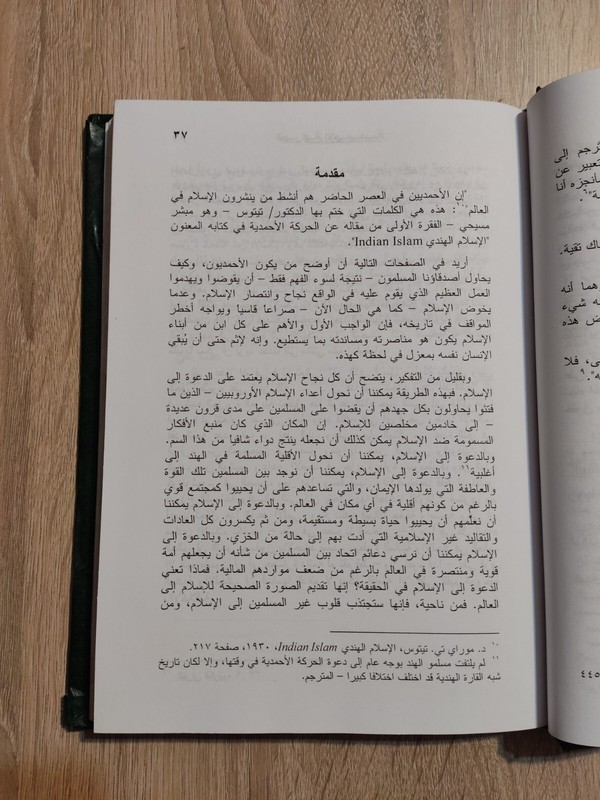 ٣٧
مقدمة
"إن الأحمديين في العصر الحاضر هم أنشط من ينشرون الإسلام في
العالم"١٠: هذه هي الكلمات التي ختم بها الدكتور/ تيتوس – وهو مبشر
مسيحي – الفقرة الأولى من مقاله عن الحركة الأحمدية في كتابه المعنون
"الإسلام الهندي Indian Islam".
أريد في الصفحات التالية أن أوضح من يكون الأحمديون، وكيف
يحاول أصدقاؤنا المسلمون – نتيجة لسوء الفهم فقط – أن يقوضوا ويهدموا
العمل العظيم الذي يقوم عليه في الواقع نجاح وانتصار الإسلام. وعندما
يخوض الإسلام – كما هي الحال الآن – صراعاً قاسياً ويواجه أخطر
المواقف في تاريخه، فإن الواجب الأول والأهم على كل ابن من أبناء
الإسلام يكون هو مناصرته ومساندته بما يستطيع. وإنه لإثم حتى أن يُبقي
الإنسان نفسه بمعزل في لحظة كهذه.
وبقليل من التفكير، يتضح أن كل نجاح الإسلام يعتمد على الدعوة إلى
الإسلام. فبهذه الطريقة يمكننا أن نحول أعداء الإسلام الأوروبيين – الذين ما
فتئوا يحاولون بكل جهدهم أن يقضوا على المسلمين على مدى قرون عديدة
– إلى خادمين مخلصين للإسلام. إن المكان الذي كان منبع الأفكار
المسمومة ضد الإسلام يمكن كذلك أن نجعله ينتج دواء شافيا من هذا السم.
وبالدعوة إلى الإسلام، يمكننا أن نحول الأقلية المسلمة في الهند إلى
أغلبية١١. وبالدعوة إلى الإسلام، يمكننا أن نوجد بين المسلمين تلك القوة
والعاطفة التي يولدها الإيمان، والتي تساعدهم على أن يحييوا كمجتمع قوي
بالرغم من كونهم أقلية في أي مكان في العالم. وبالدعوة إلى الإسلام يمكننا
أن نعلّمهم أن يحييوا حياة بسيطة ومستقيمة، ومن ثم يكسرون كل العادات
والتقاليد غير الإسلامية التي أدت بهم إلى حالة من الخزي. وبالدعوة إلى
الإسلام يمكننا أن نرسي دعائم اتحاد بين المسلمين من شأنه أن يجعلهم أمة
قوية ومنتصرة في العالم بالرغم من ضعف مواردهم المالية. فماذا تعني
الدعوة إلى الإسلام في الحقيقة؟ إنها تقديم الصورة الصحيحة للإسلام إلى
العالم. فمن ناحية، فإنها ستجتذب قلوب غير المسلمين إلى الإسلام، ومن
١٠ د. موراي تي. تيتوس، الإسلام الهندي Indian Islam، ١٩٣٠، صفحة ٢١٧.
١١ لم يلتفت مسلمو الهند بوجه عام إلى دعوة الحركة الأحمدية في وقتها، وإلا لكان تاريخ
شبه القارة الهندية قد اختلف اختلافا كبيرا – المترجم.
إلى
عن
أنا
اك تقية.
هما أنه
شيء
هذه
فلا
٤٤٥